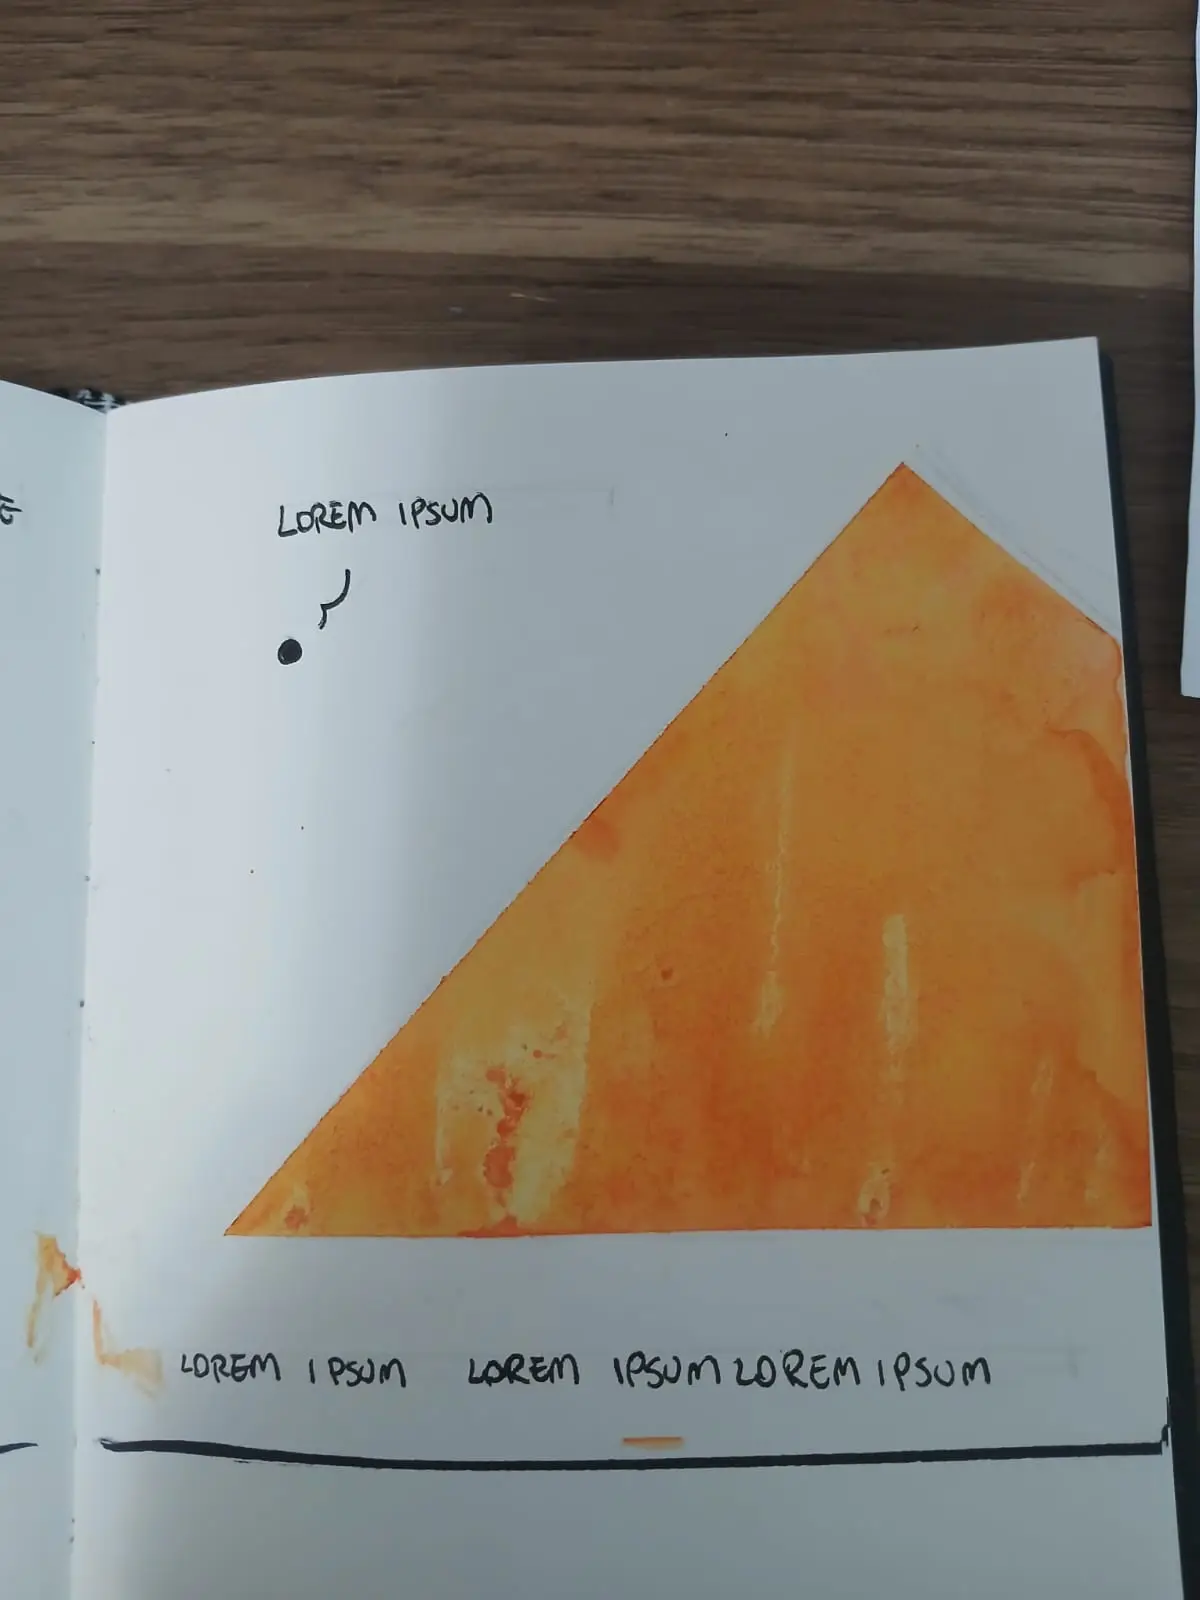 LOREM IPSUM
LOREM IPSUM LOREM IPSUM LOREM IPSUM